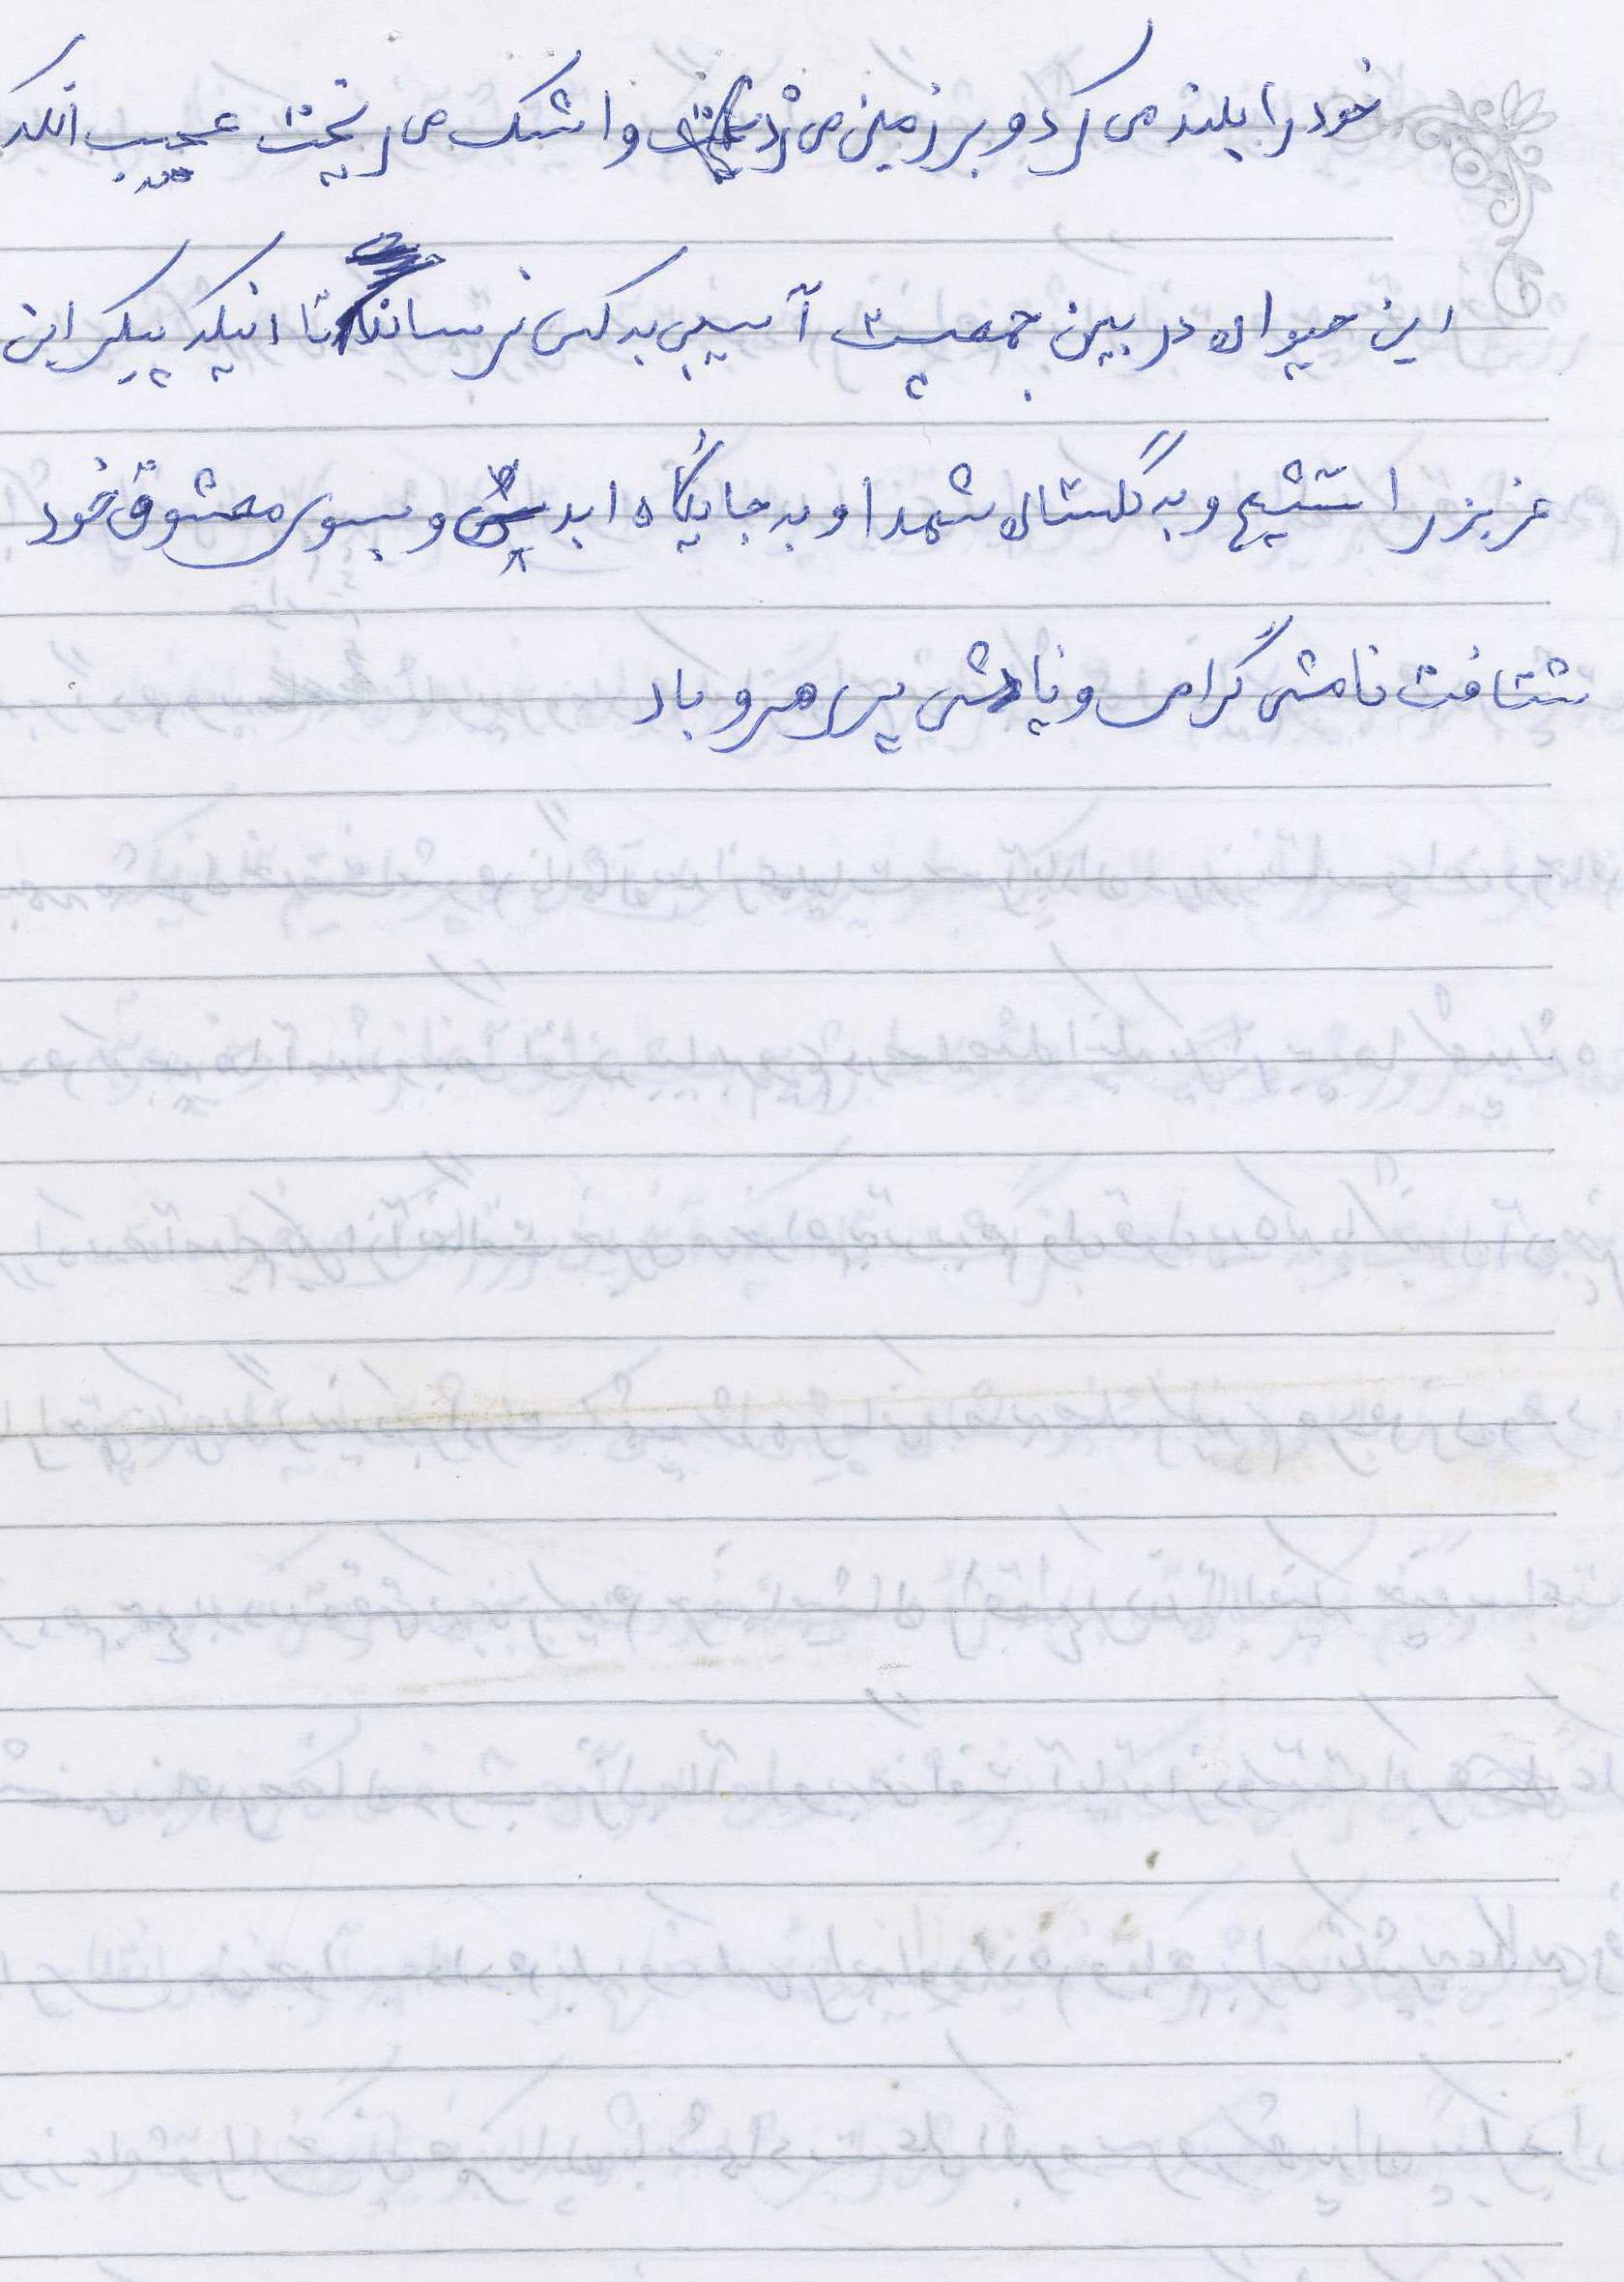 خود را بلند می کرد و بر زمین می زد و اشک می ریخت عجیب انکه
این حیوان در بین جمعیت آسیبی به کسی نرساند تا اینکه پیکر این
عزیز را تشیع و به گلستان شهدا و به جایگاه ابدیش و بسوی معشوق خود
شتافت نامش گرامی و یادش پر رهرو باد